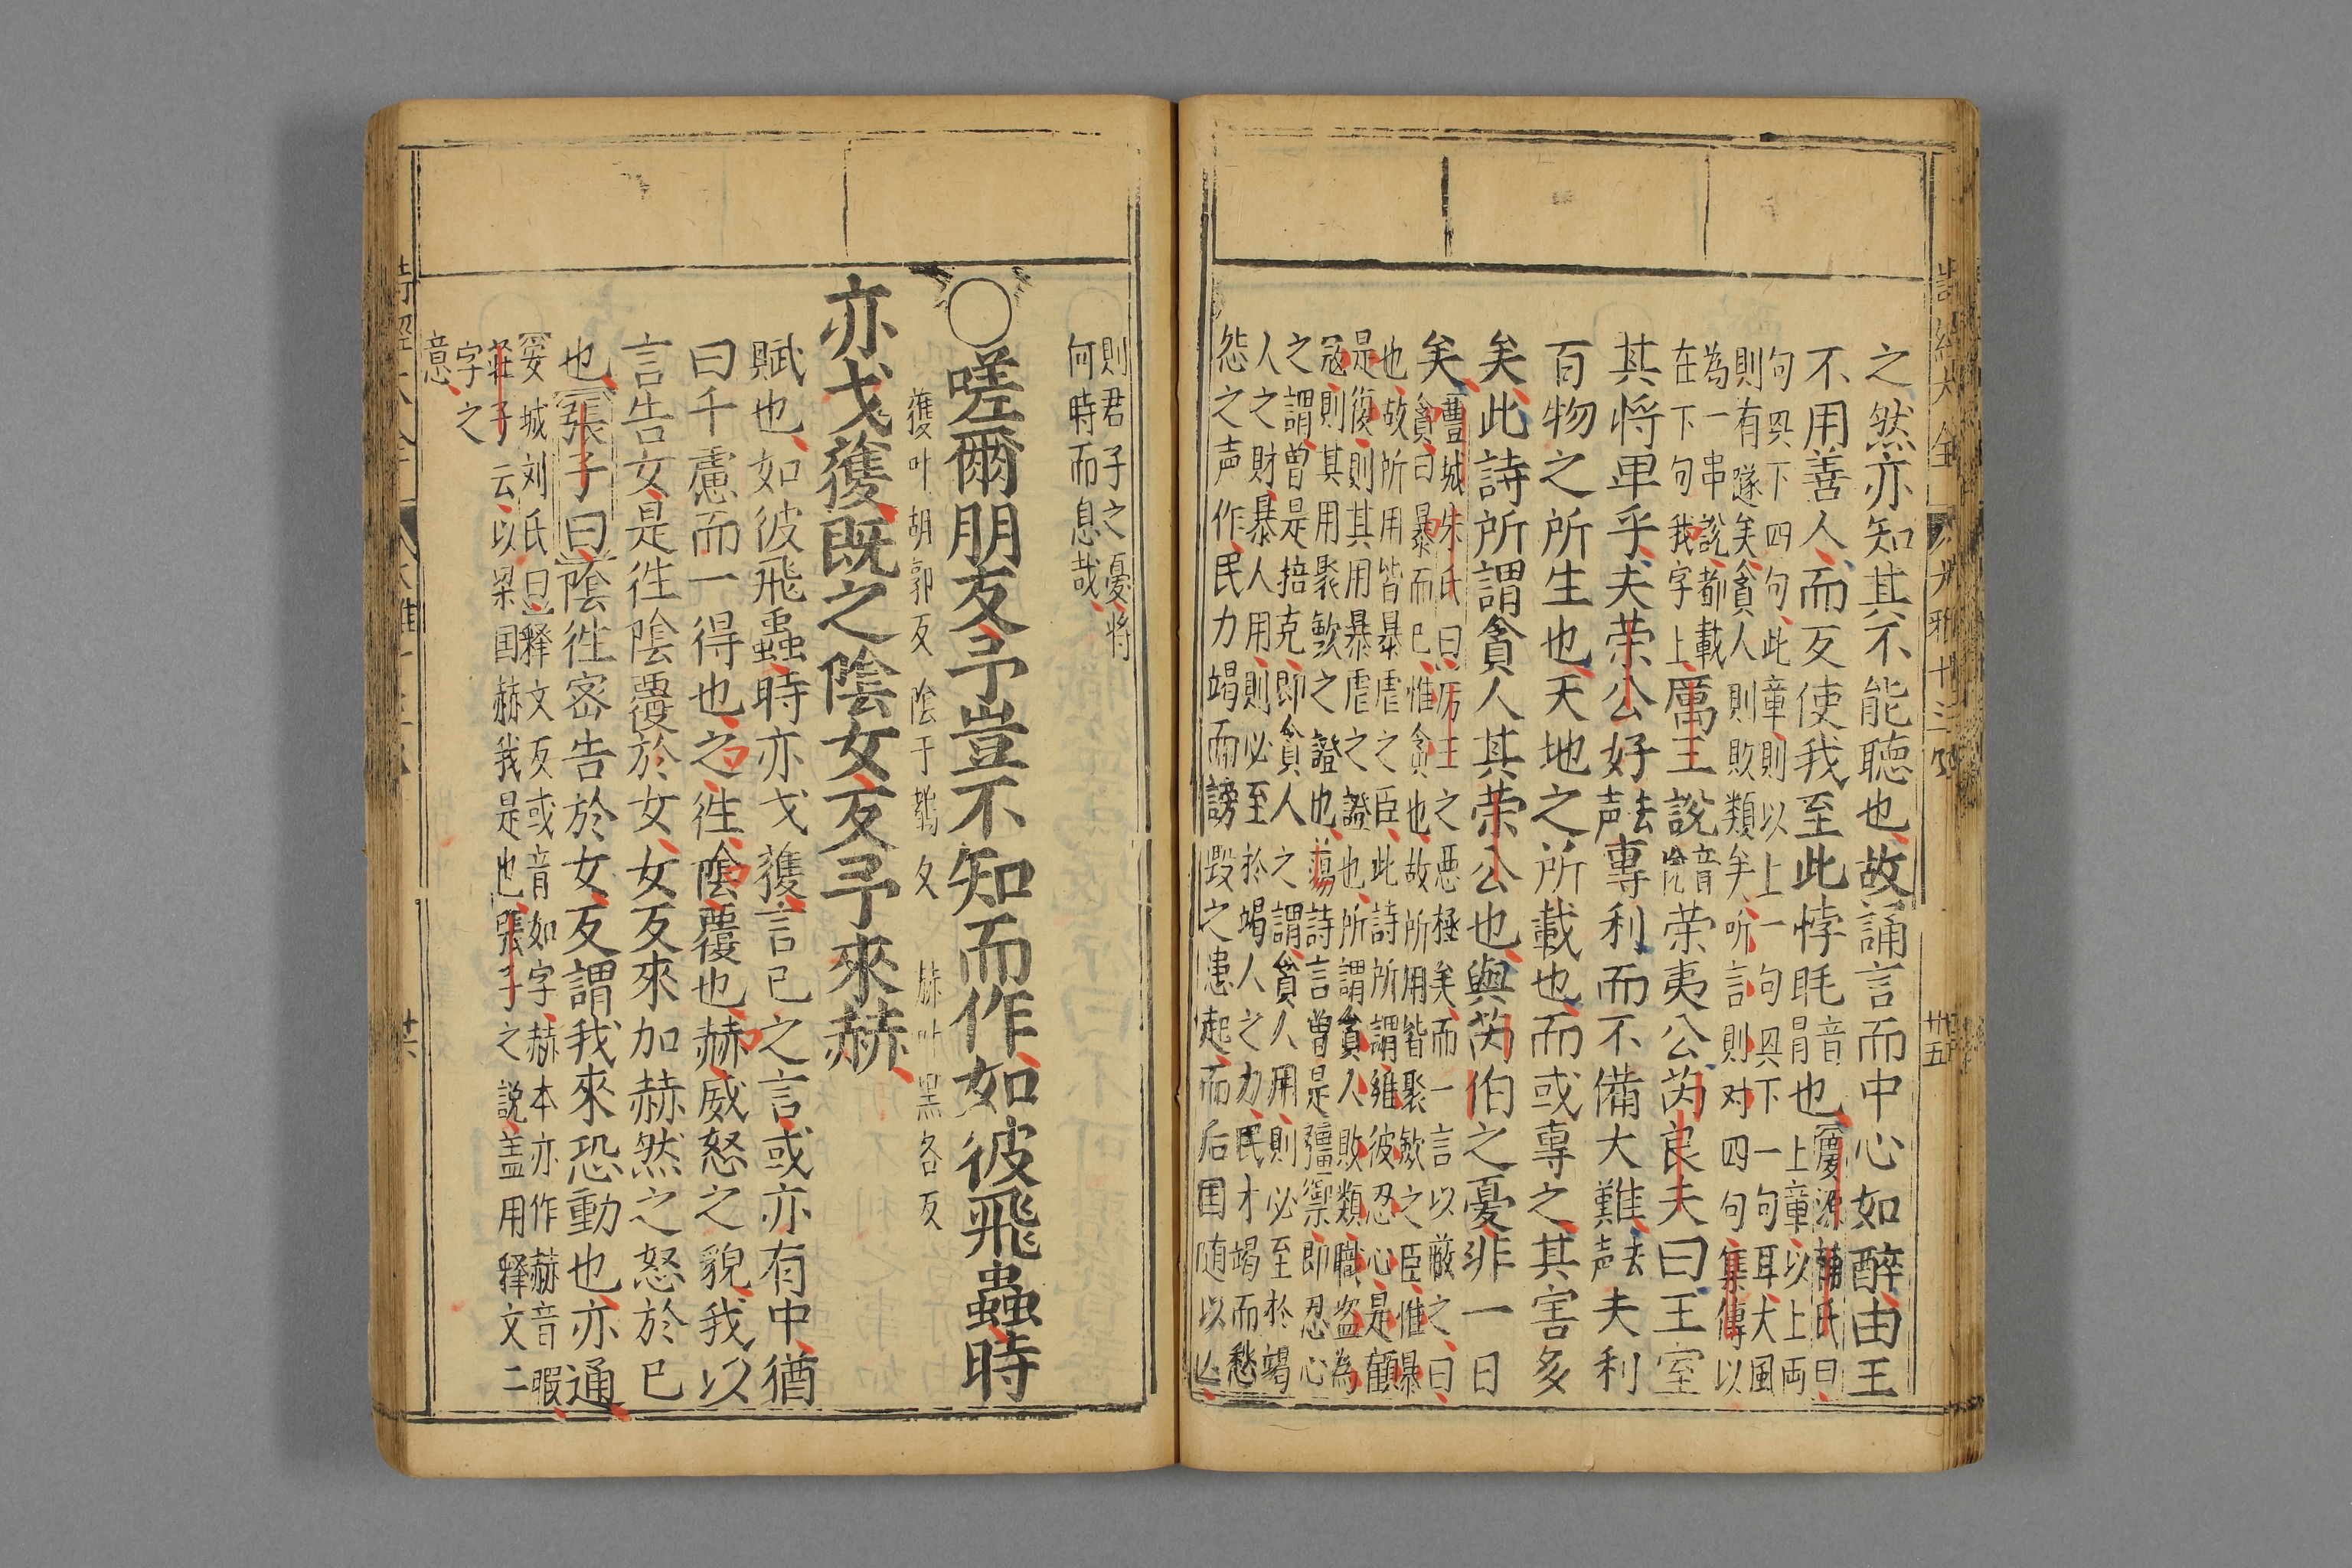 詩經大全 大雅十三 卅五
之然亦知其不能聽也故誦言而中心如醉由王
不用善人而反使我至此悖眊音冐也
婺源輔氏曰
上章以上両
句與下四句此章則以上一句與下一句耳大風
則有隧矣貪人則敗類矣听言則对四句集傳以
為一串說都載
在下句我字上
厲王說音榮夷公芮良夫曰王室
其将卑乎夫荣公好去声專利而不備大難去声夫利
百物之所生也天地之所載也而或專之其害多
矣此詩所謂貪人其荣公也與芮伯之憂非一日
矣
豊城朱氏曰厉王之惡極矣而一言以蔽之曰
貪曰暴而已惟貪也故所用皆聚歛之臣惟暴
也故所用皆暴虐之臣此詩所謂維彼忍心是顧
是復則其用暴虐之證也所謂貪人敗類職盗為
寇則其用聚歛之證也蕩詩言曽是彊禦即忍心
之謂曽是掊克即貪人之謂貪人用則必至於竭
人之財暴人用則必至於竭人之力民才竭而愁
怨之声作民力竭而謗毀之患起而后国随以亾
則君子之憂将
何時而息哉
○嗟爾朋友予豈不知而作如彼飛蟲時
獲叶胡郭反 隂于鴆反 赫叶黑各反
亦弋獲既之隂女反予來赫
賦也如彼飛蟲時亦弋獲言已之言或亦有中猶
曰千慮而一得也之徃隂覆也赫威怒之貌我以
言告女是徃隂覆於女女反來加赫然之怒於已
也張子曰隂徃宻告於女反謂我來恐動也亦通
安城刘氏曰釋文反或音如字赫本亦作赫音暇
莊子云以梁国赫我是也張子之説盖用释文二
字之
意